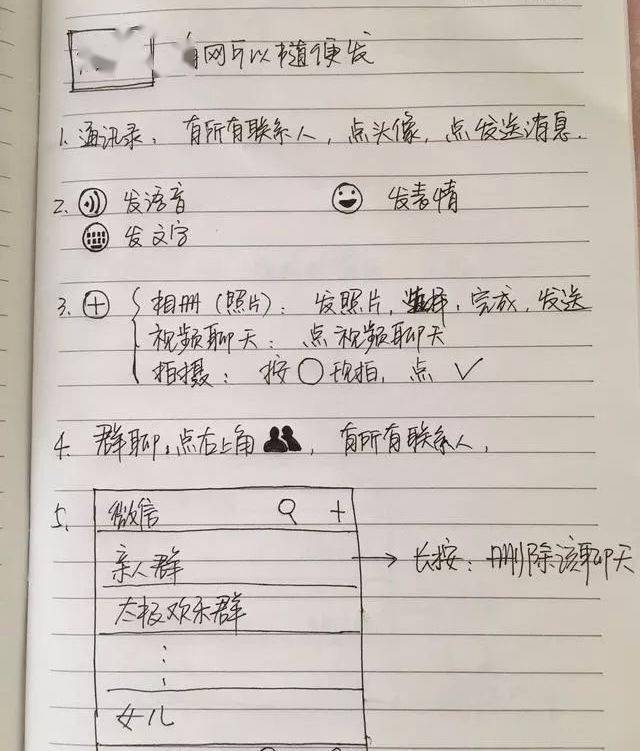 有网可以随便发
1. 通讯录：有所有联系人，点头像，点发送消息.
2. 发语音 发表情
发文字
3. 相册（照片）：发照片，选择，完成，发送
视频聊天：点视频聊天
拍摄：按〇抓拍，点✓
4. 群聊，点右上角，有所有联系人，
5. 微信 +
亲人群 → 长按：删除该聊天
太极欢乐群
女儿